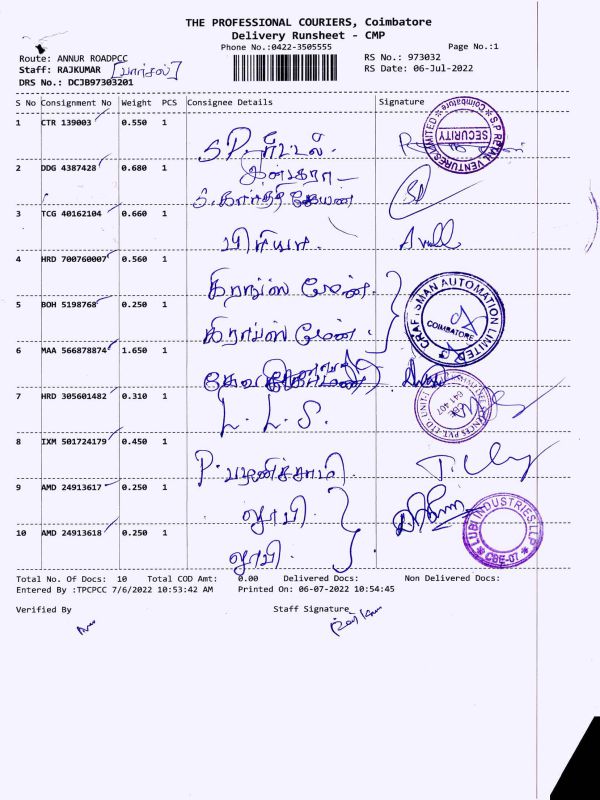 THE PROFESSIONAL COURIERS, Coimbatore
Delivery Runsheet - CMP
Phone No.:0422-3505555 Page No.:1
Route: ANNUR ROADPCC RS No.: 973032
Staff: RAJKUMAR [பார்சல்] RS Date: 06-Jul-2022
DRS No.: DCJB97303201
S No Consignment No Weight PCS Consignee Details Signature
1 CTR 139003 0.550 1
S.P. ரீட்டல். S.P RETAIL VENTURES LIMITED Coimbatore SECURITY
2 DDG 4387428 0.680 1
3 TCG 40162104 0.660 1
பிரியா.
4 HRD 700760007 0.560 1
5 BOH 5198768 0.250 1
CRAFTSMAN AUTOMATION LIMITED COIMBATORE
6 MAA 566878874 1.650 1
7 HRD 305601482 0.310 1
L. L. S. 641 407
8 IXM 501724179 0.450 1
P. பழனிச்சாமி.
9 AMD 24913617 0.250 1
லூபி.
10 AMD 24913618 0.250 1
லூபி. LUBI INDUSTRIES LLP CBE-07
Total No. Of Docs: 10 Total COD Amt: 0.00 Delivered Docs: Non Delivered Docs:
Entered By :TPCPCC 7/6/2022 10:53:42 AM Printed On: 06-07-2022 10:54:45
Verified By Staff Signature